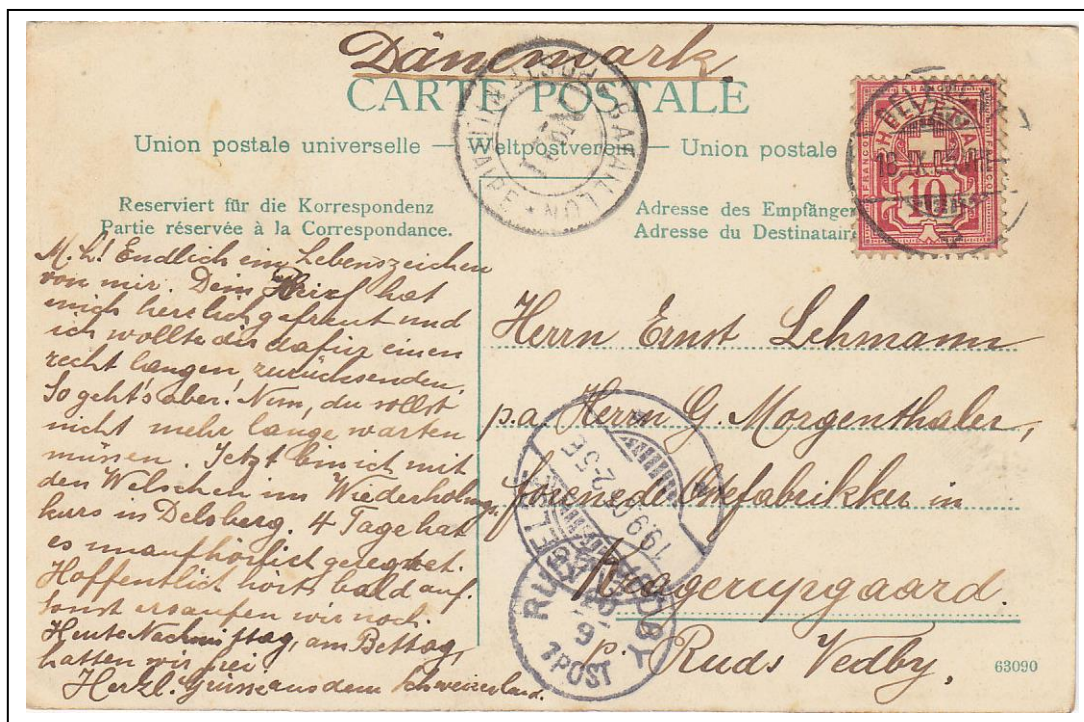 Dänemark
CARTE POSTALE
Union postale universelle — Weltpostverein — Union postale
Reserviert für die Korrespondenz
Partie réservée à la Correspondance.
Adresse des Empfänger
Adresse du Destinatair
HELVETIA
FRANCO
10
M. L! Endlich ein Lebenszeichen
von mir. Dein Brief hat
mich herzlich gefreut und
ich wollte dir dafür einen
recht langen zurücksenden.
So geht's aber! Nun, du sollst
nicht mehr lange warten
müssen. Jetzt bin ich mit
den Welschen im Wiederholungs
kurs in Delsberg. 4 Tage hat
es unaufhörlich geregnet.
Hoffentlich hörts bald auf.
Sonst ersaufen wir noch.
Heute Nachmittag, am Bettag,
hatten wir frei
Herzl. Grüsse aus dem Schweizerland.
Herrn Ernst Lehmann
p.a. Herrn G. Morgenthaler,
forenede Ostefabrikker in
Kragerupgaard.
p. Ruds Vedby,
RUDS VEDBY
7 POST
63090